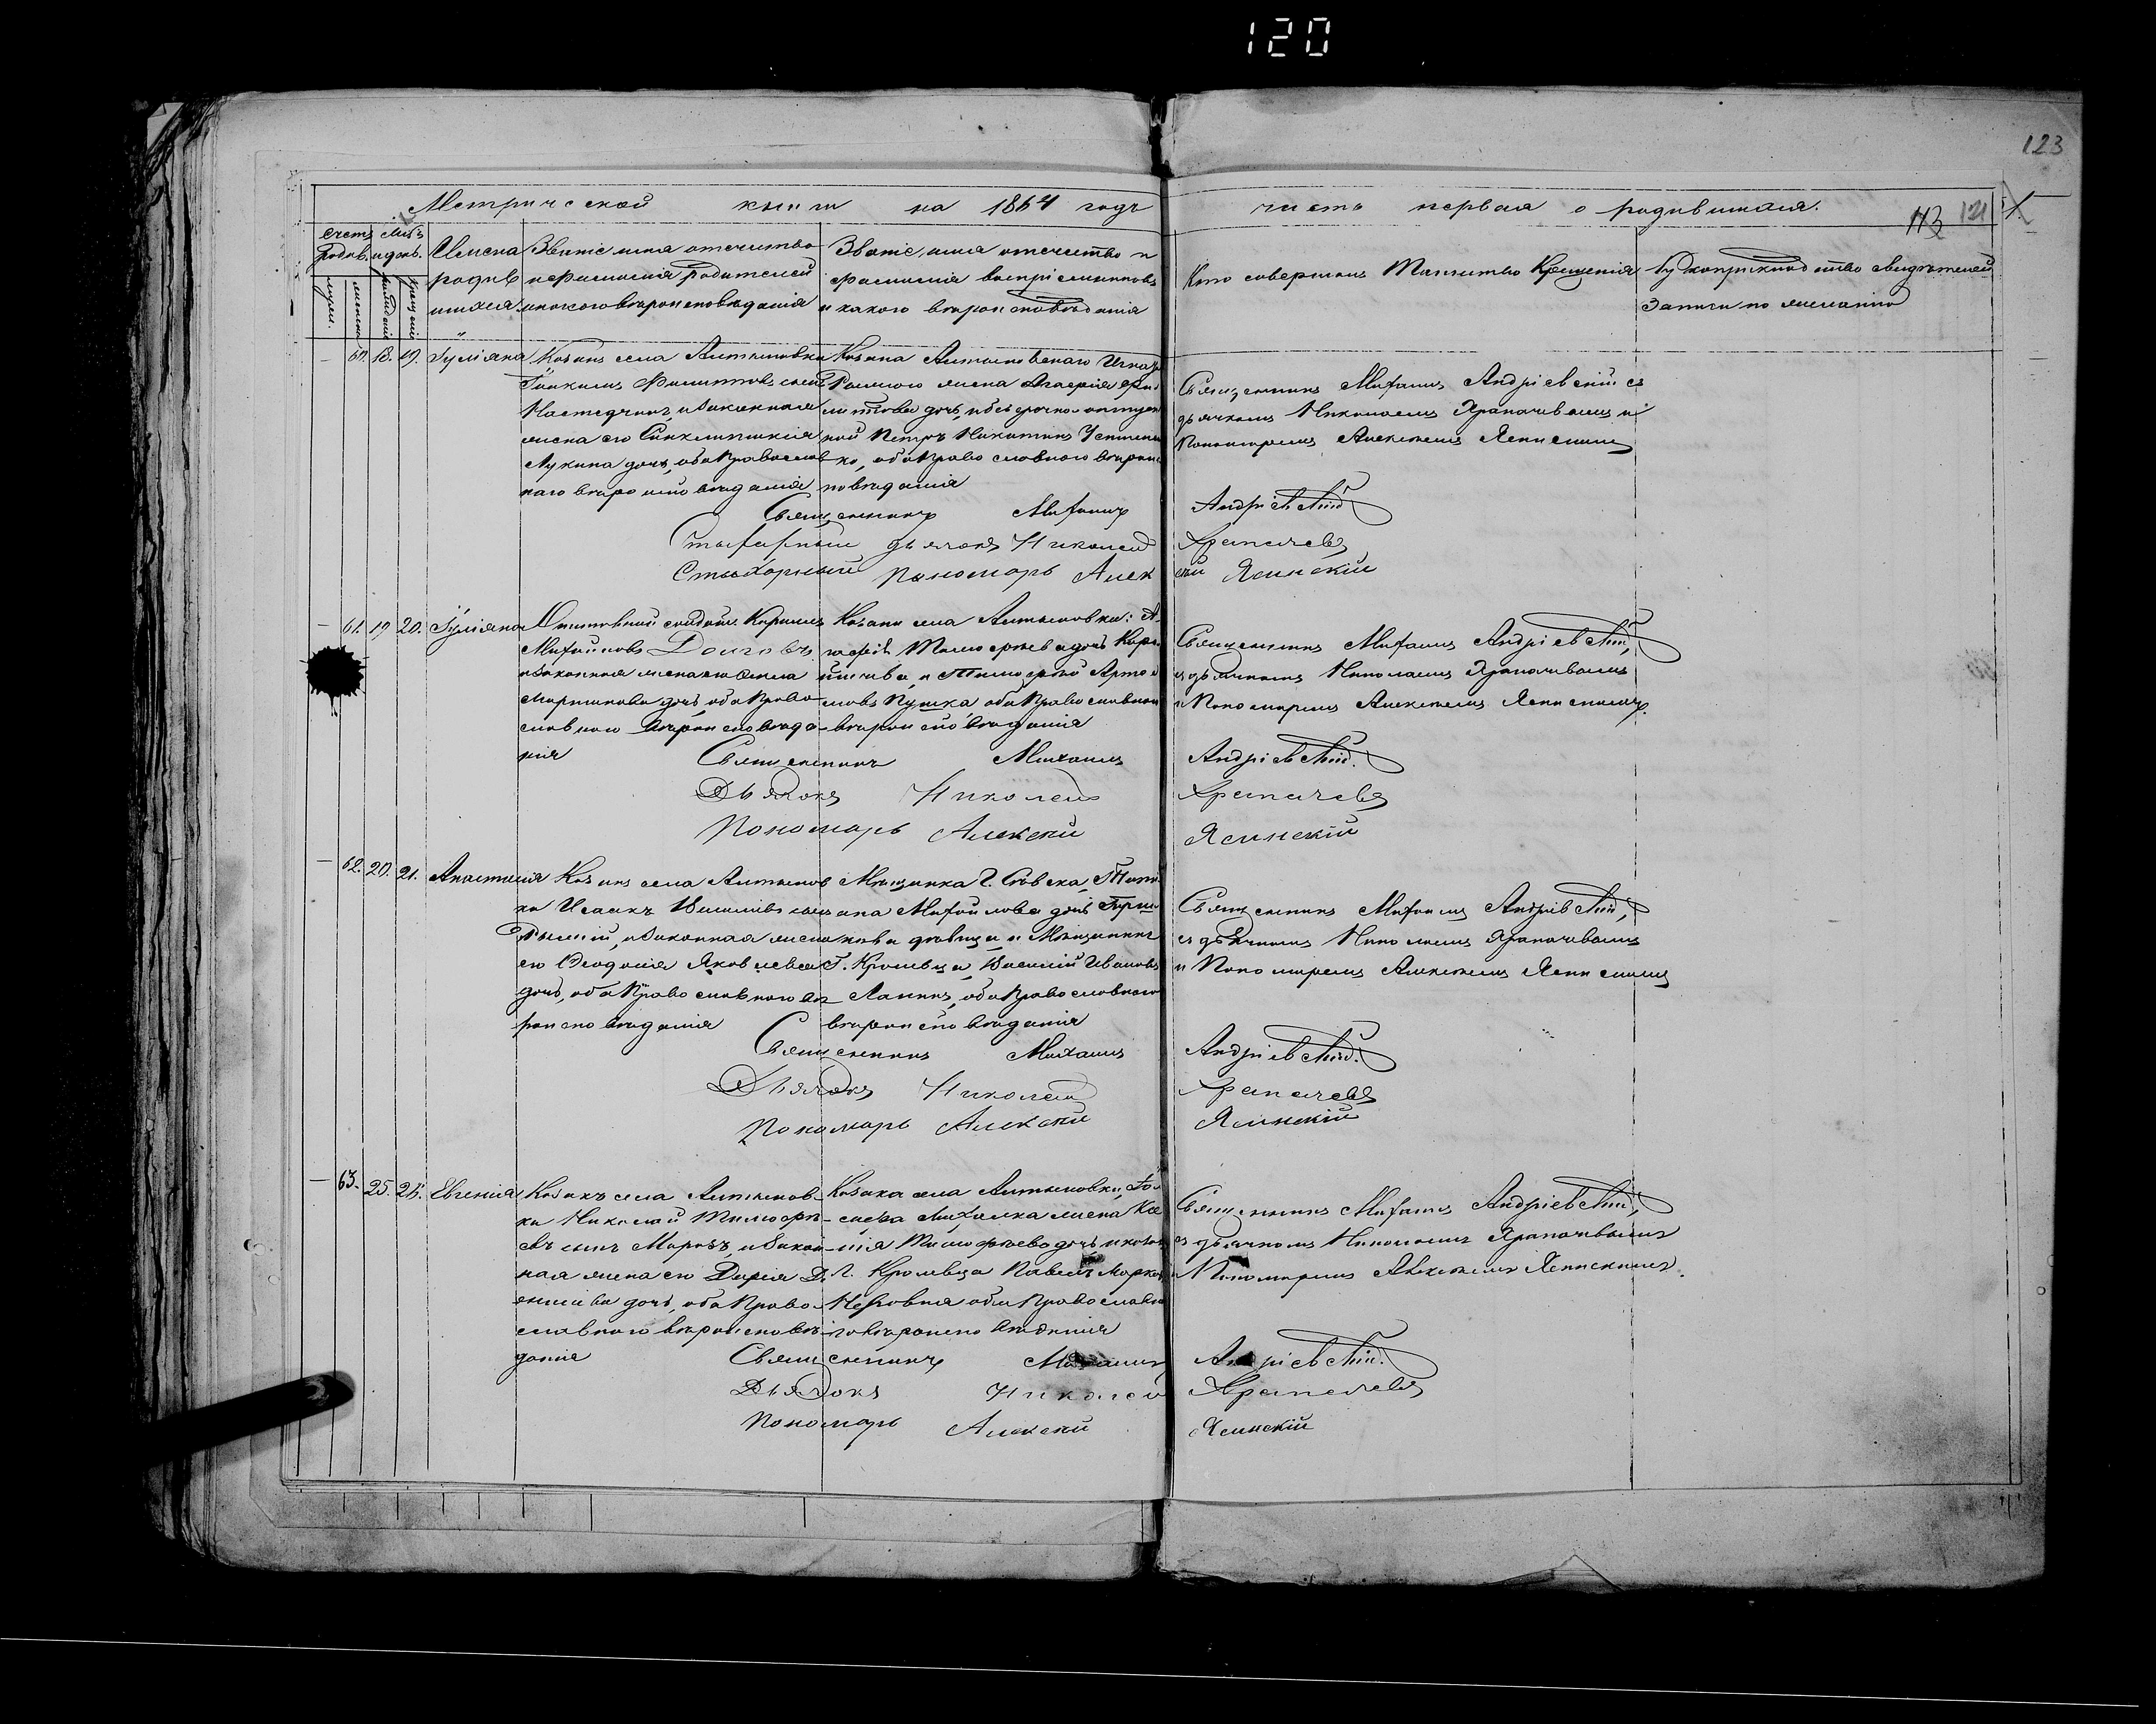 120
123
Метрической книги на 1864 годъ
часть первая о родившихся.
113 121
Счетъ родив.
мужеск.
женска
рожденія
крещенія
Имена родившихся
Званіе имя отечество
и фамилія родителей
и какого вѣроисповѣданія
Званіе, имя отечество и
фамилія воспріемниковъ
и какого вѣроисповѣданія
Кто совершалъ Таинство Крещенія
Рукоприкладство свидѣтелей
записи по желанію
60. 18. 19. Іуліяна
Козакъ села Алтыновки
Іоакимъ Филиповъ сынъ
и законная
жена его Синклитикія
Лукина дочь, оба Православ
наго вѣроисповѣданія
Козака Алтыновскаго
жена Агафія Фи
липова дочь, и безсрочно-отпуск
ной Петръ Никитинъ
оба Православнаго вѣроис
повѣданія
Священникъ Михаилъ Андріевскій съ
дьячкомъ Николаемъ Храпачевымъ и
Пономаремъ Алексѣемъ Ясинскимъ
Священникъ Михаилъ Андріевскій
Стихарный дьячокъ Николай Храпачевъ
Стихарный пономарь Алексѣй Ясинскій
61. 19 20. Іуліяна
солдатъ
Михайловъ Долговъ
и законная жена его
Мартинова дочь, оба Право
славнаго вѣроисповѣда
нія
Козаки села Алтыновки: А
гафія Тимофѣева дочь
и Тимофѣй
Пушка оба Православнаго
вѣроисповѣданія
Священникъ Михаилъ Андріевскій,
съ дьячкомъ Николаемъ Храпачевымъ
и Пономаремъ Алексѣемъ Ясинскимъ.
Священникъ Михаилъ Андріевскій.
Дьячокъ Николай Храпачевъ
Пономарь Алексѣй Ясинскій
62. 20. 21. Анастасія
Козакъ села Алтынов
ки Исаакъ Василіевъ сынъ
и законная жена
его Ѳеодосія Яковлева
дочь, оба Православнаго вѣ
роисповѣданія
Мѣщанка Г. Сѣвска, Тати
ана Михайлова дочь
дѣвица и Мѣщанинъ
Г. Кролевца Василій Ивановъ
оба Православнаго
вѣроисповѣданія
Священникъ Михаилъ Андріевскій,
съ дьячкомъ Николаемъ Храпачевымъ
и Пономаремъ Алексѣемъ Ясинскимъ
Священникъ Михаилъ Андріевскій.
Дьячокъ Николай Храпачевъ
Пономарь Алексѣй Ясинскій
63. 25. 26. Евгенія
Козакъ села Алтынов
ки Николай Тимофѣ
евъ сынъ и закон
ная жена его Дарія
дочь, оба Право
славнаго вѣроисповѣ
данія
Козака села Алтыновки
жена Ксе
нія Тимофѣева дочь и козакъ
Г. Кролевца Павелъ
оба Православна
го вѣроисповѣданія
Священникъ Михаилъ Андріевскій,
съ дьячкомъ Николаемъ Храпачевымъ
и Пономаремъ Алексѣемъ Ясинскимъ.
Священникъ Михаилъ Андріевскій.
Дьячокъ Николай Храпачевъ
Пономарь Алексѣй Ясинскій